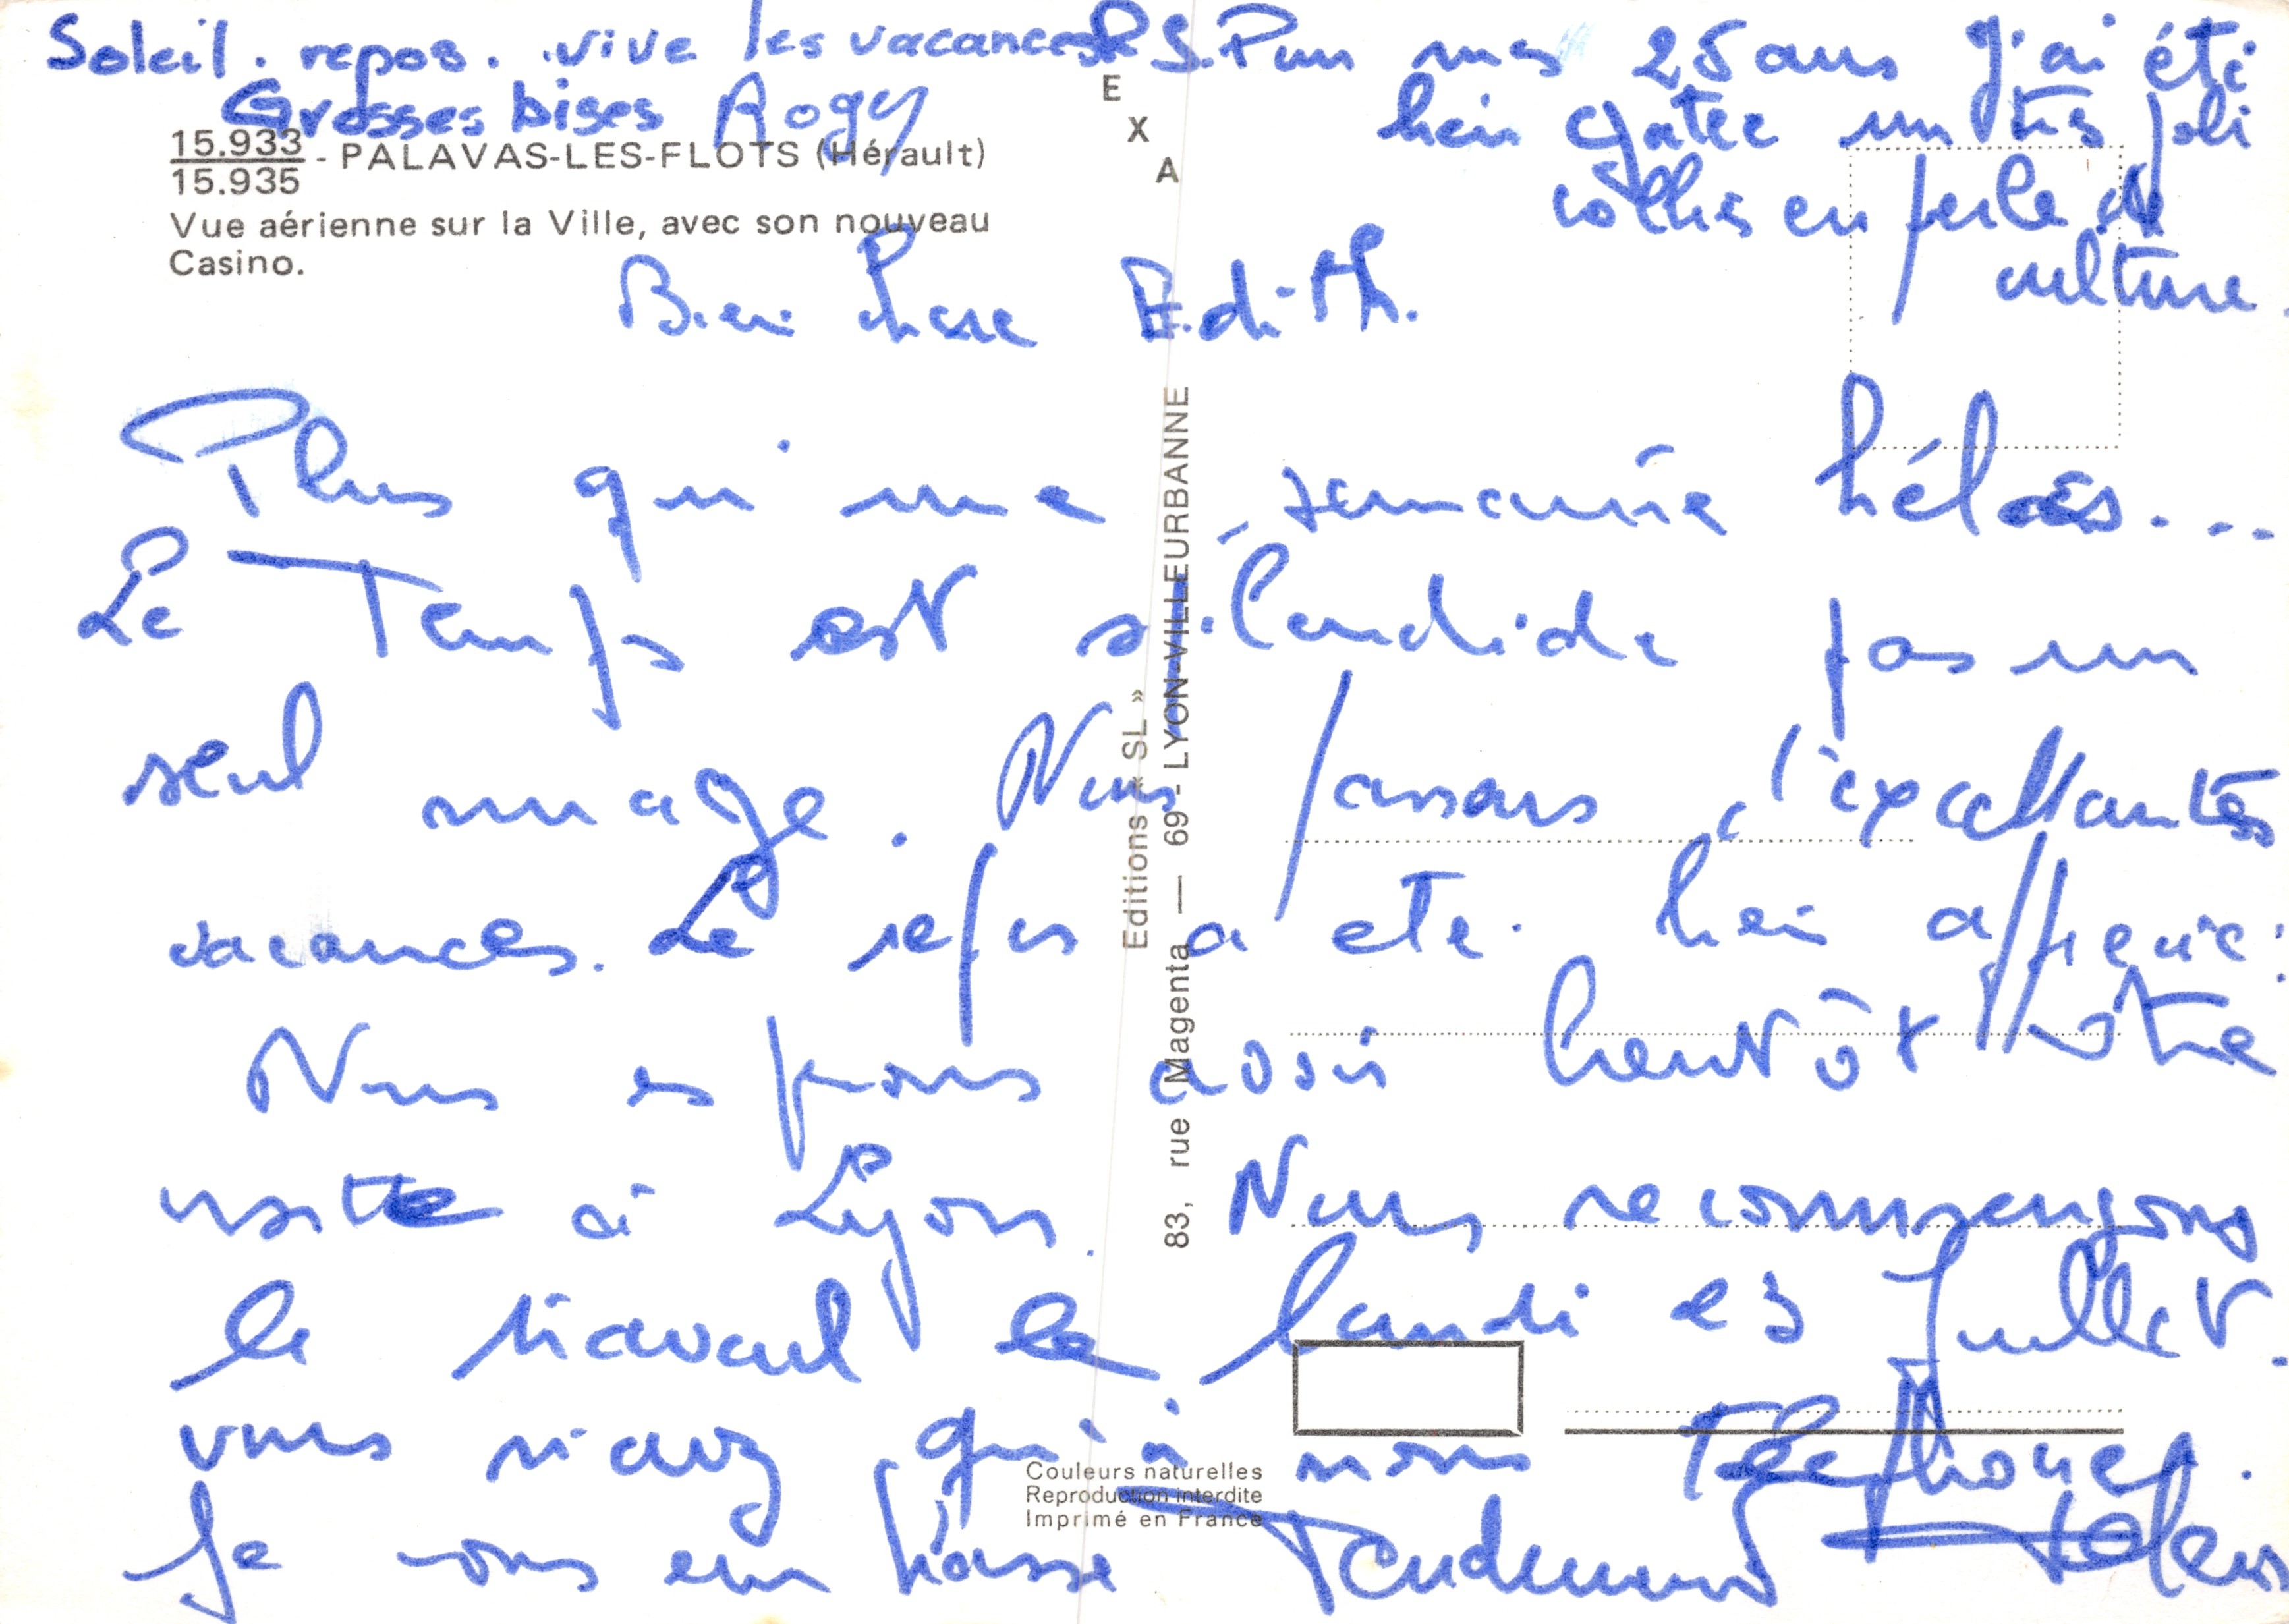 Soleil. repos. vive les vacances
Grosses bises Rogy
P.S. Pour mes 25 ans J'ai été
bien gatée un très joli
collier en perle de
culture.
E
X
A
15.933
15.935 - PALAVAS-LES-FLOTS (Hérault)
Vue aérienne sur la Ville, avec son nouveau
Casino.
Bien chere Edith.
Plus qu'une semaine hélas...
Le Temps est splendide pas un
seul nuage. Nous passons d'excellantes
vacances. Le repos a été bien apprécié.
Nous esperons avoir bientôt votre
visite à Lyon. Nous recommençons
le travail le lundi 23 Juillet.
vous n'avez qu'à nous Téléphoner.
Je vous embrasse Tendement
Editions « SL »
83, rue Magenta — 69 - LYON-VILLEURBANNE
Couleurs naturelles
Reproduction interdite
Imprimé en France